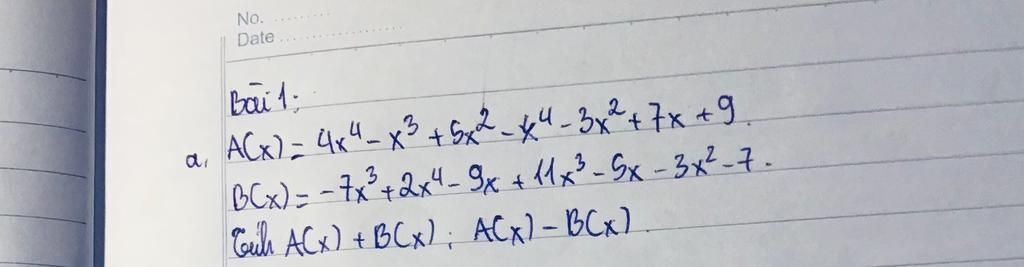 No. .........
Date ..................
Bài 1:
a, A(x) = 4x⁴ - x³ + 5x² - x⁴ - 3x² + 7x + 9
B(x) = -7x³ + 2x⁴ - 9x + 11x³ - 5x - 3x² - 7.
Tính A(x) + B(x) ; A(x) - B(x).